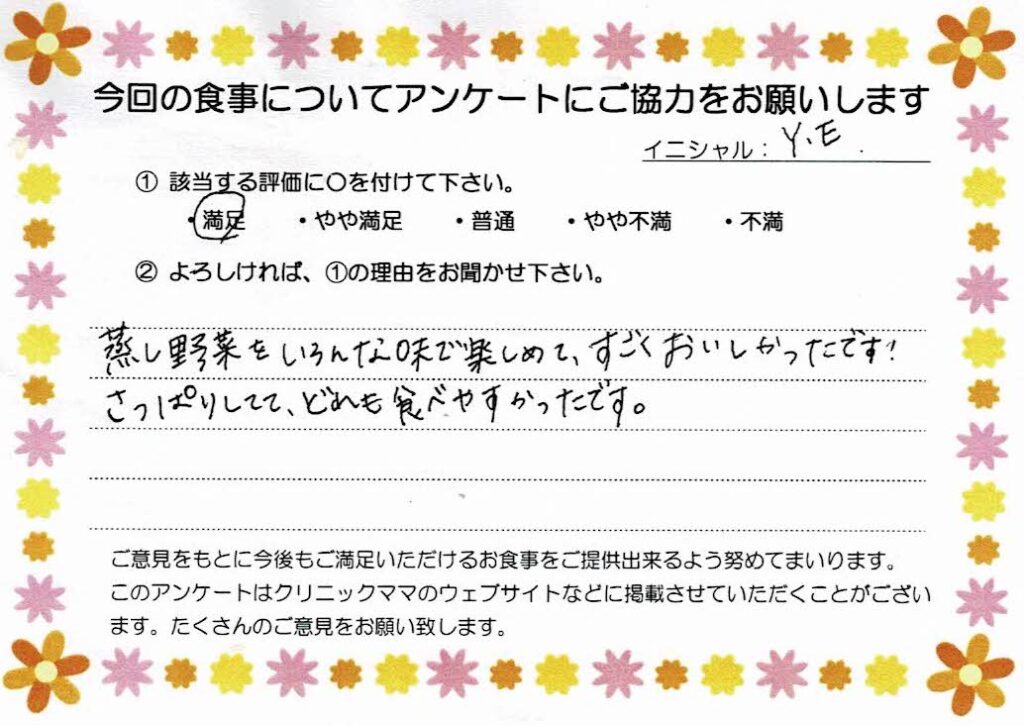 今回の食事についてアンケートにご協力をお願いします
イニシャル： Y.E.
① 該当する評価に〇を付けて下さい。
・満足 ・やや満足 ・普通 ・やや不満 ・不満
② よろしければ、①の理由をお聞かせ下さい。
蒸し野菜をいろんな味で楽しめて、すごくおいしかったです！
さっぱりしてて、どれも食べやすかったです。
ご意見をもとに今後もご満足いただけるお食事をご提供出来るよう努めてまいります。
このアンケートはクリニックママのウェブサイトなどに掲載させていただくことがござい
ます。たくさんのご意見をお願い致します。